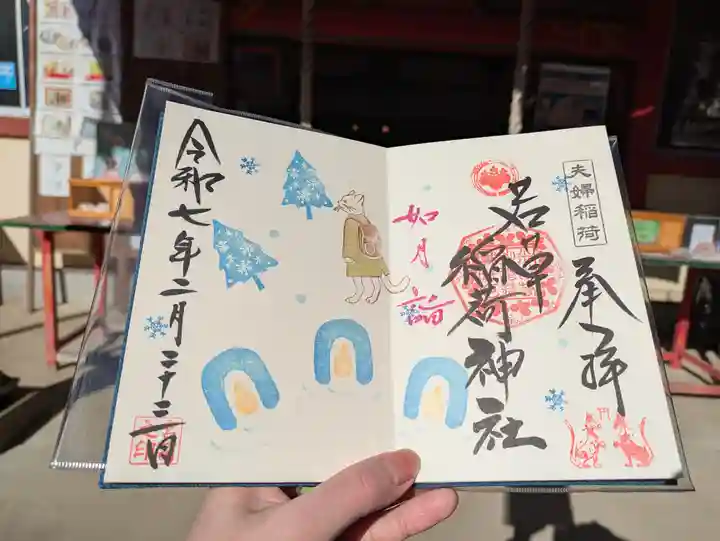 夫婦稲荷
承拝
若草
稲荷神社
如月詣
令和七年二月二十三日